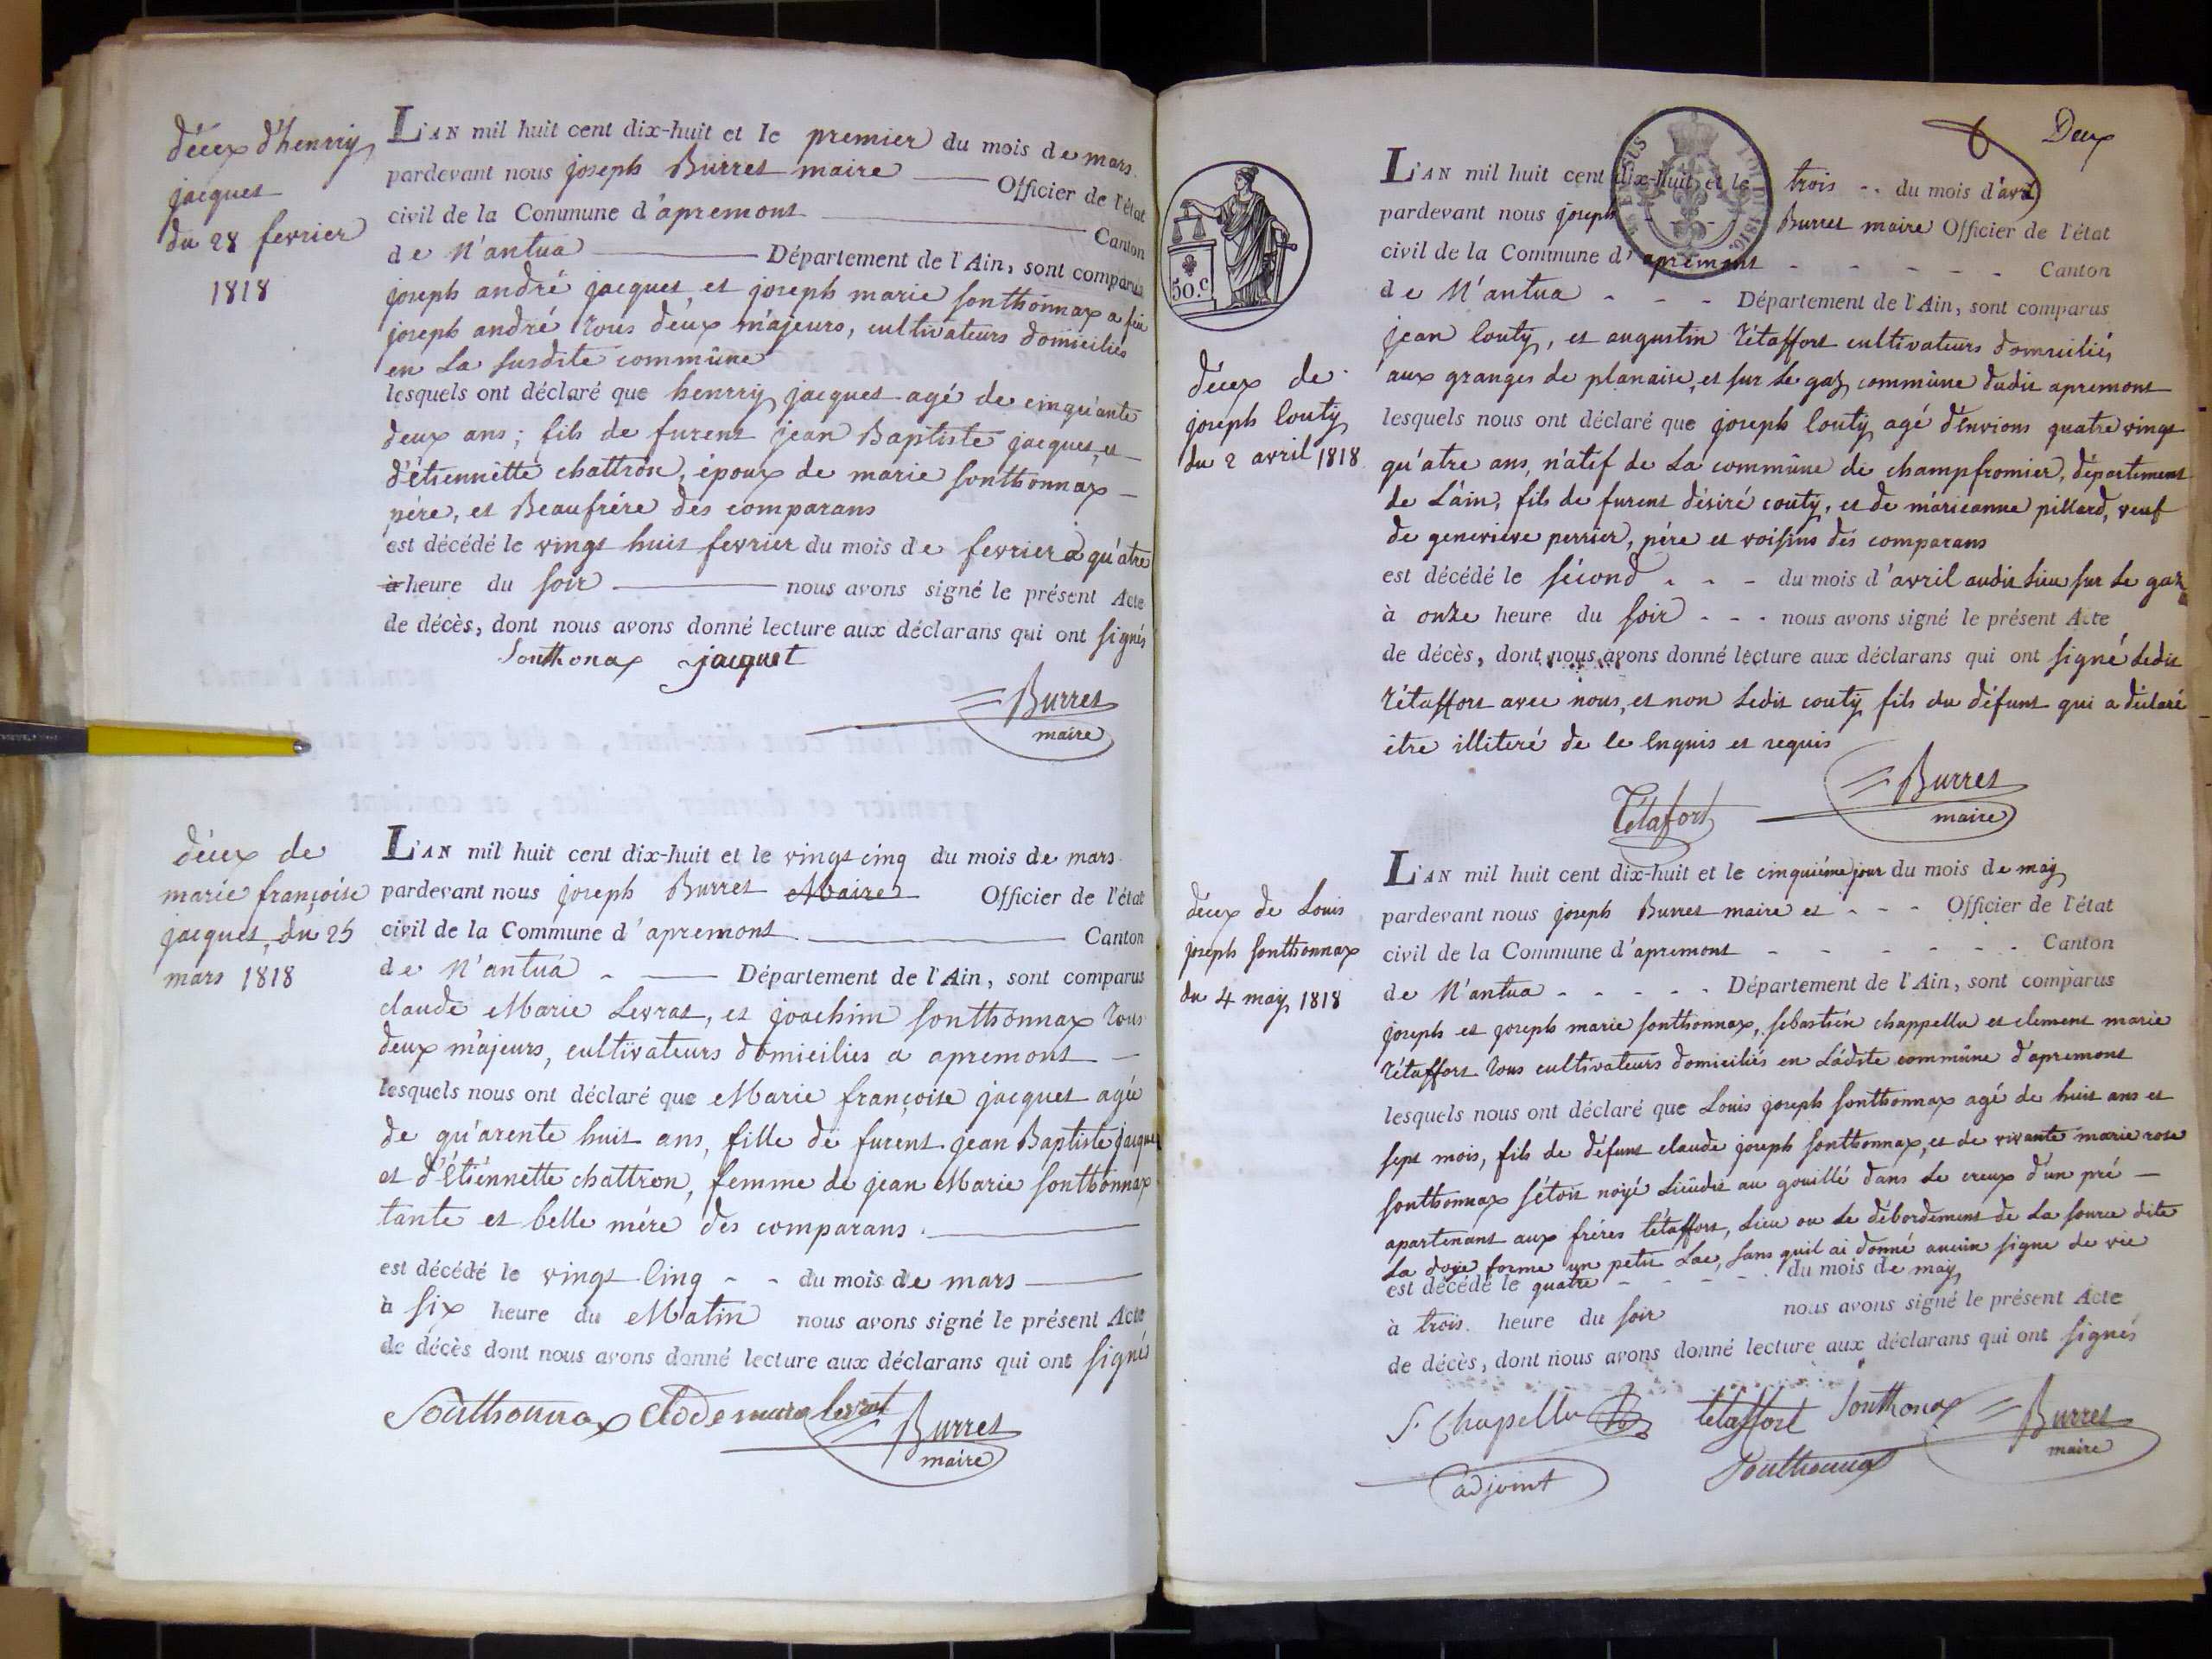 décex d'henrry
jacquet
du 28 fevrier
1818
L'AN mil huit cent dix-huit et le premier du mois de mars.
pardevant nous joseph Burret maire Officier de l'état
civil de la Commune d'apremont Canton
de N'antua Département de l'Ain, sont comparus
joseph andré jacquet, et joseph marie sonthonnax a feu
joseph andré tous deux majeurs, cultivateurs domiciliés
en La susdite commune
lesquels ont déclaré que henrry jacquet agé de cinqu'ante
deux ans; fils de furent jean Baptiste jacquet, et
d'étiennette chattron, époux de marie sonthonnax
pére, et Beaufrére des comparans
est décédé le vingt huit fevrier du mois de fevrier a qu'atre
à heure du soir nous avons signé le présent Acte
de décès, dont nous avons donné lecture aux déclarans qui ont signés
Sonthonax jacquet
Burret
maire
décex de
marie françoise
jacquet, du 25
mars 1818
L'AN mil huit cent dix-huit et le vingt cinq du mois de mars.
pardevant nous joseph Burret Maire Officier de l'état
civil de la Commune d'apremont Canton
de N'antua Département de l'Ain, sont comparus
claude Marie Levrat, et joachim sonthonnax tous
deux majeurs, cultivateurs domiciliés a apremont
lesquels nous ont déclaré que Marie françoise jacquet agée
de qu'arente huit ans, fille de furent jean Baptiste jacquet
et d'Etiénnette chattron, femme de jean Marie sonthonnax
tante et belle mére des comparans.
est décédé le vingt Cinq du mois de mars
à six heure du Matin nous avons signé le présent Acte
de décès dont nous avons donné lecture aux déclarans qui ont signé
Sonthonnax Clode marie levrat
Burret
maire
Deux
50.C
décex de
joseph Couty
du 2 avril 1818
L'AN mil huit cent dix-huit et le trois du mois d'avril
pardevant nous joseph Burret maire Officier de l'état
civil de la Commune d'apremont Canton
de N'antua Département de l'Ain, sont comparus
jean Couty, et augustin Tétaffort cultivateurs domiciliés
aux granges de planaise, et sur Le gaz commune dudit apremont
lesquels nous ont déclaré que joseph Couty agé d'Environs quatre vingt
qu'atre ans, n'atif de La commune de champfromier, département
de L'ain, fils de furent désiré couty, et de márieanne pillard, veuf
de genevieve perrier, pére et voisins des comparans
est décédé le sécond du mois d'avril audit Lieu sur Le gaz
à onze heure du soir nous avons signé le présent Acte
de décès, dont nous avons donné lecture aux déclarans qui ont signé Ledit
Tétaffort avec nous, et non Ledit couty fils du défunt qui a déclaré
être illiteré de ce Enquis et requis
Tétafort
Burret
maire
décex de Louis
joseph sonthonnax
du 4 may 1818
L'AN mil huit cent dix-huit et le cinquiéme jour du mois de may
pardevant nous joseph Burret maire et Officier de l'état
civil de la Commune d'apremont Canton
de N'antua Département de l'Ain, sont comparus
joseph et joseph marie sonthonnax, sebastien chappellu et clement marie
Tétaffort tous cultivateurs domiciliés en Ladite commune d'apremont
lesquels nous ont déclaré que Louis joseph sonthonnax agé de huit ans et
sept mois, fils de défunt claude joseph sonthonnax, et de vivante marie rose
sonthonnax s'étoit noÿé Lieudit au gouillé dans Le creux d'un pré
apartenant aux fréres tétaffort, Lieu ou Le débordement de La source dite
La doye forme un petit Lac, sans quil ai donné aucun signe de vie
est décédé le quatre du mois de may
à trois heure du soir nous avons signé le présent Acte
de décès, dont nous avons donné lecture aux déclarans qui ont signés
S. Chapellu tétaffort Sonthonax
Burret
maire
adjoint Sonthonnax